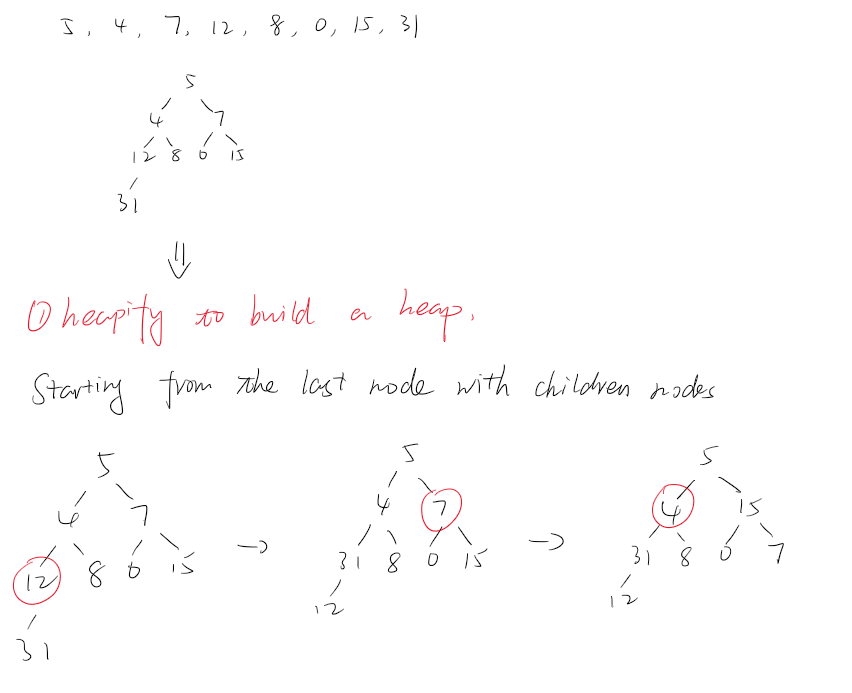 5, 4, 7, 12, 8, 0, 15, 31
5
4 7
12 8 0 15
31
① heapify to build a heap.
Starting from the last node with children nodes
5
4 7
12 8 0 15
31
5
4 7
31 8 0 15
12
5
4 15
31 8 0 7
12